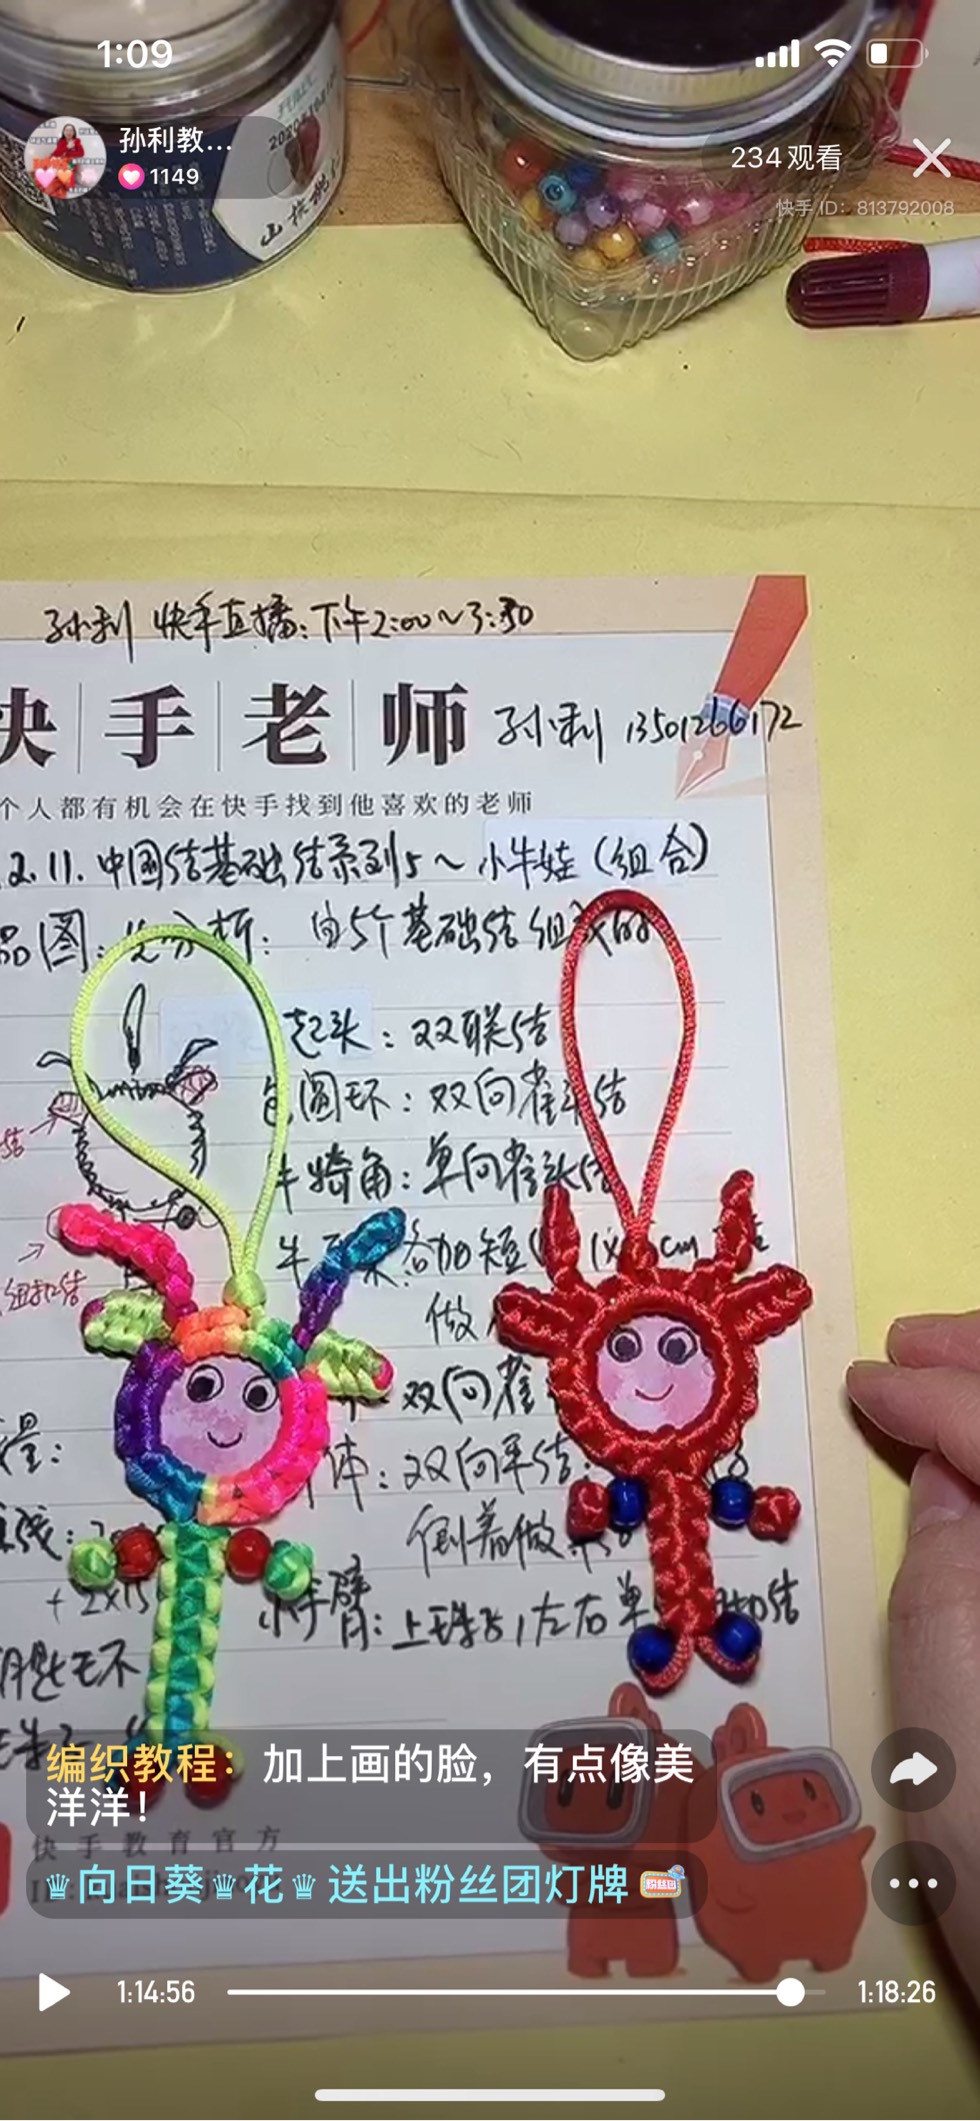 1:09
孙利教...
1149
234观看
快手 ID: 813792008
2020
山
孙利 快手直播:下午2:00~3:30
快手老师 孙利 13501266172
个人都有机会在快手找到他喜欢的老师
2.11.中国结基础结系列5~小牛娃(组合)
品图: 先分析: 由5个基础结组成的
起头: 双联结
包圆环: 双向雀头结
结
牛犄角: 单向雀头结
各加短
cm
纽扣结
做
双向雀
量:
体: 双向平结:
倒着做
线:
小手臂: 上珠子,左右单
扣结
钥匙环
编织教程: 加上画的脸, 有点像美
洋洋!
快手教育官方
向日葵 花 送出粉丝团灯牌
粉丝团
1:14:56
1:18:26